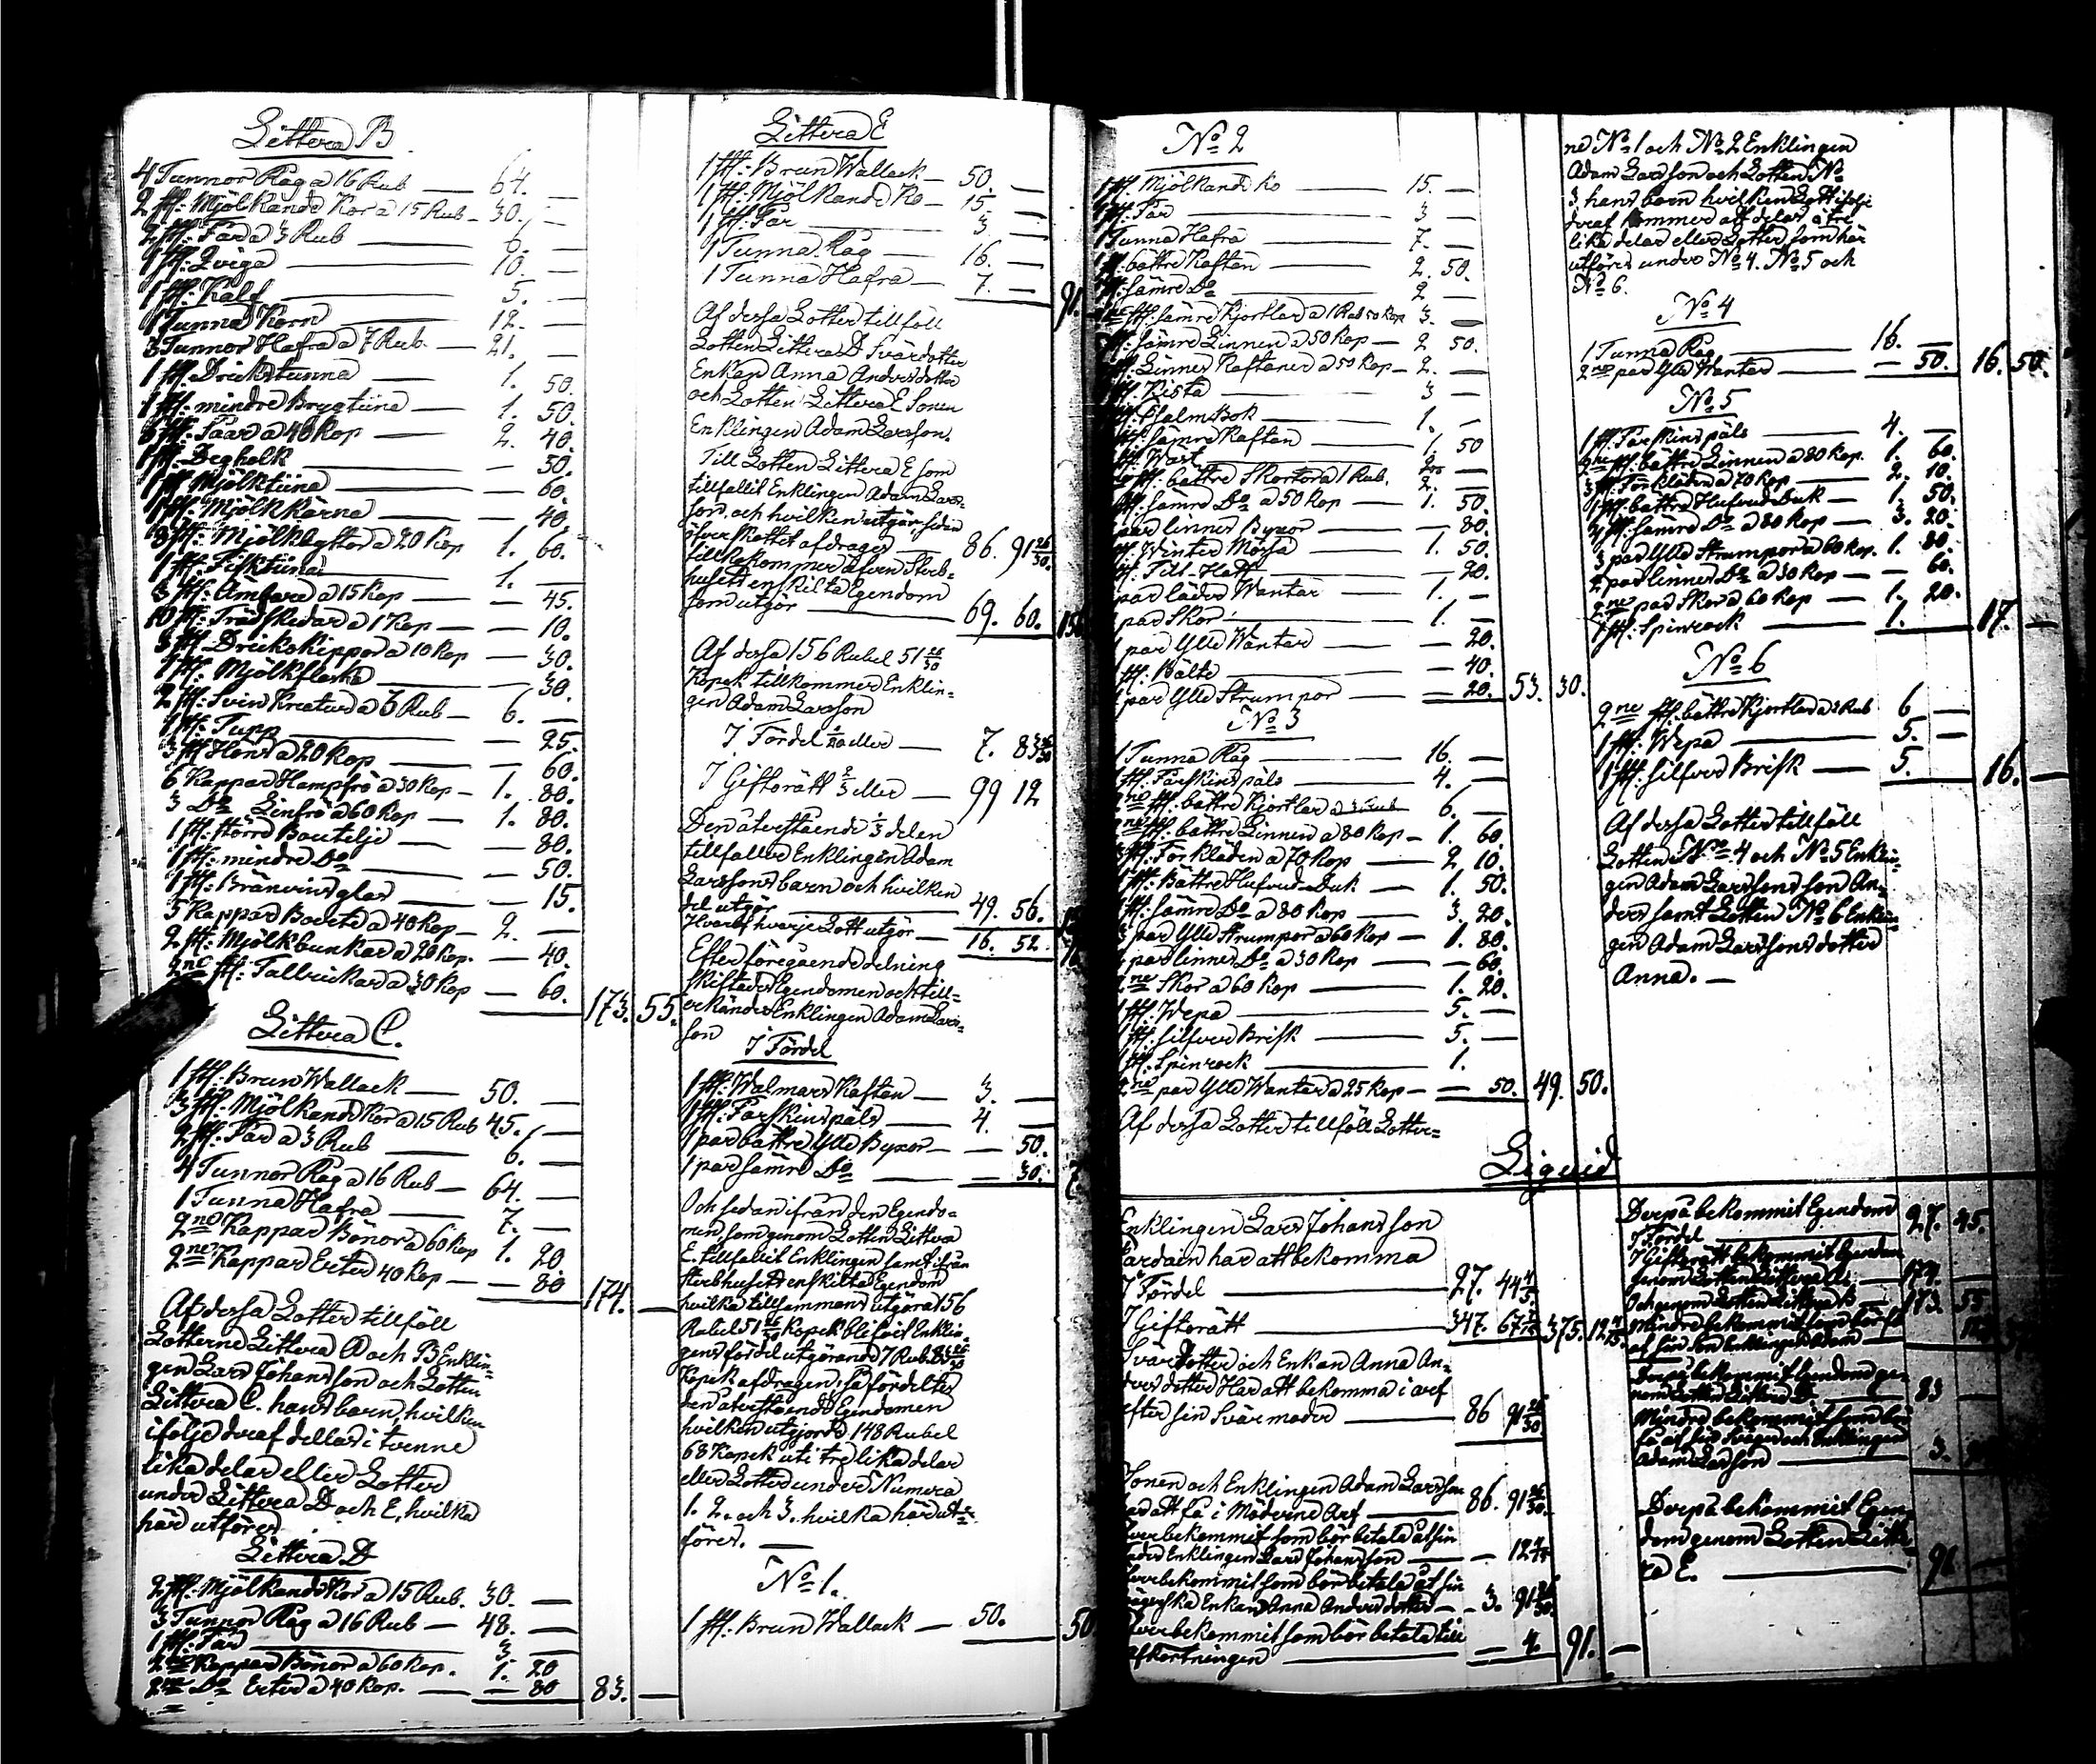 Littera B
4 Tunnor Råg a 16 Rub — 64. —
2 st: Mjölkande Kor a 15 Rub — 30. —
2 st: Får a 3 Rub — 6. —
1 st: Qviga — 10. —
1 st: Kalf — 5. —
1 Tunna Korn — 12. —
3 Tunnor Hafra a 7 Rub. — 21. —
1 st. Drickstunna — 1. 50.
1 st: mindre Brygtiina — 1. 50.
6 st: Såar a 40 Kop — 2. 40.
1 st: Degholk — — 50.
1 st Mjölktiina — — 60.
1 st: Mjölkkärna — — 40.
8 st: Mjölkbyttor a 20 Kop 1. 60.
1 st: Fisktiina — 1. —
3 st: Ämbare a 15 Kop — — 45.
10 st: Trädskedar a 1 Kop — — 10.
3 st Drickskippor a 10 Kop — 30.
1 st: Mjölkflaska — — 30.
2 st: Svin Kreatur a 3 Rub — 6. —
1 st: Tupp — — 25.
3 st Höns a 20 Kop — — 60.
6 Kappar Hampfrö a 30 Kop — 1. 80.
3 Do Linfrö a 60 Kop — 1. 80.
1 st: större Boutelje — — 80.
1 st: mindre Do — — 50.
1 st: Bränvins glas — — 15.
5 Kappar Bovete a 40 Kop — 2. —
2 st: Mjölkbunkar a 20 Kop. — — 40.
2ne st: Tallrickar a 30 Kop — 60. 173. 55.
Littera C.
1 st: Brun Wallack — 50. —
3 st: Mjölkande Kor a 15 Rub 45. —
2 st: Får a 3 Rub — 6. —
4 Tunnor Råg a 16 Rub — 64. —
1 Tunna Hafra — 7. —
2ne Kappar Bönor a 60 Kop 1. 20.
2ne Kappar Erter 40 Kop — — 80 174. —
Af dessa Lotter tillföll
Lotterne Littera A och B Enklin=
gen Lars Johansson och Lotten
Littera C. hans barn, hvilken
ifölje deraf dellas i tvenne
lika delar eller Lotter
under Littera D och E, hvilka
här utföres.
Littera D
2 st: Mjölkande Kor a 15 Rub. 30. —
3 Tunnor Råg a 16 Rub — 48. —
1 st: Får — 3 —
2ne Kappar Bönor a 60 Kop. 1. 20
2ne Do Erter a 40 Kop. — — 80 83. —
Littera E
1 st: Brun Wallack — 50. —
1 st: Mjölkande Ko — 15 —
1 st: Får — 3 —
1 Tunna Råg — 16. —
1 Tunna Hafra — 7. — 91.
Af dessa Lotter tillföll
Lotten Littera D Svärdotter
Enkan Anna Andersdotter
och Lotten Littera E Sonen
Enklingen Adam Larsson.
Till Lotten Littera E som
tillfallit Enklingen Adam Lars=
son, och hvilken utgör sedan
öfverskottet afdrages — 86. 91 26/30.
tillkommer äfven Sterb=
husets enskilta Egendom
som utgör — 69. 60. 156
Af dessa 156 Rubel 51 26/30
Kopek tillkommer Enklin=
gen Adam Larsson
I Fördel 1/20 eller — 7. 83
I Giftorätt 2/3 eller — 99 12
Den återstående 1/3 delen
tillfaller Enklingen Adam
Larssons barn och hvilken
del utgör — 49. 56.
Hvaraf hvarje Lott utgör — 16. 52.
Efter föregående delning
skiftades Egendomen och till=
erkändes Enklingen Adam Lars=
son
I Fördel
1 st: Walmars Kaftan — 3. —
1 st: Fårskins päls — 4. —
1 par bättre Ylle Byxor — — 50.
1 par sämre Do — — 30. 7.
Och sedan ifrån den Egendo=
men, som genom Lotten Littera
E. tillfallit Enklingen samt ifrån
Sterbhusets enskilta Egendom
hvilka tillsammans utgöra 156
Rubel 51 26/30 Kopek blifvit Enklin=
gens fördel utgörande 7 Rub. 83
Kopek afdragen, så fördeltes
den återstående Egendomen
hvilken utgjorde 148 Rubel
68 Kopek uti tre lika delar
eller Lotter under Numera
1. 2. och 3. hvilka här ut=
föres. —
No 1.
1 st: Brun Wallack — 50. 50
No 2
1 st. Mjölkande Ko — 15. —
st: Får — 3 —
1 Tunna Hafra — 7. —
1 st. bättre Kaftan — 2. 50.
st: sämre Do — 2 —
2ne st. sämre Kjortlar a 1 Rub 50 Kop 3. —
st: sämre Linnen a 50 Kop — 2 50.
st: Linnes Kaftaner a 50 Kop — 2. —
st. Kista — 3 —
st. Psalm Bok — 1. —
st. sämre Kaftan — 1. 50
st: Wäst —
st: bättre Skortor a 1 Rub. 2. —
st: sämre Do a 50 Kop — 1. 50.
par linnes Byxor — — 80.
st: Winter Mössa — 1. 50.
st. Filt-Hatt — — 20.
par läder Wantar — 1. —
par Skor — 1. —
1 par Ylle Wantar — — 20.
1 st: Bälte — — 40.
1 par Ylle Strumpor — — 20. 53. 30.
No 3
1 Tunna Råg — 16. —
1 st: Fårskins päls — 4. —
2ne st. bättre Kjortlar a 3 Rub 6. —
2ne st: bättre Linnen a 80 Kop — 1. 60.
3 st: Förkläden a 70 Kop — 2 10.
1 st: Bättre Hufvud Duk — 1. 50.
4 st: sämre Do a 80 Kop — 3. 20.
3 par Ylle Strumpor a 60 Kop — 1. 80.
2 par linnes Do a 30 Kop — — 60.
2ne Skor a 60 Kop — 1. 20.
1 st: Wepa — 5. —
1 st: silfver Brisk — 5. —
1 st. Spinrock — 1.
2ne par Ylle Wantar a 25 Kop — — 50. 49. 50.
Af dessa Lotter tillföll Lotter=
ne No 1 och No 2 Enklingen
Adam Larsson och Lotten No
3 hans barn hvilken Lott ifölje
deraf kommer att delas i tre
lika delar eller Lotter som här
utföres under No 4. No 5 och
No 6.
No 4
1 Tunna Råg — 16. —
2ne par Ylle Wantar — — 50. 16. 50.
No 5
1 st. Fårskins päls — 4. —
2ne st. bättre Linnen a 80 Kop. 1. 60.
3 st. Förkläden a 70 Kop — 2. 10.
1 st. bättre Hufvud Duk — 1. 50.
4 st. sämre Do a 80 Kop — 3. 20.
3 par Ylle Strumpor a 60 Kop. 1. 80.
2 par linnes Do a 30 Kop — — 60.
2ne par Skor a 60 Kop — 1. 20.
1 st. Spinrock — 1. 17. —
No 6
2ne st. bättre Kjortlar a 3 Rub 6 —
1 st: Wepa — 5. —
1 st. silfver Brisk — 5. 16. —
Af dessa Lotter tillföll
Lotten No 4 och No 5 Enklin=
gen Adam Larssons son An=
ders samt Lotten No 6 Enklin=
gen Adam Larssons dotter
Anna. —
Liqvid
Enklingen Lars Johansson
har att bekomma
I Fördel — 27. 44
I Giftorätt — 347. 67 375. 12
Svärdotter och Enkan Anna An=
dersdotter Har att bekomma i arf
efter sin Svärmoder — 86 91 26/30
Sonen och Enklingen Adam Larsson
har att få i Möderne Arf — 86. 91 26/30.
Öfverbekommit som bör betala åt sin
fader Enklingen Lars Johansson — — 12
Öfverbekommit som bör betala åt sin
svägerska Enkan Anna Andersdotter — 3. 91 26/30.
Öfverbekommit som bör betala till
afkortningen — — 4. 91. —
Derpå bekommit Egendom
I Fördel — 27. 45.
I Giftorätt bekommit Egendom
genom Lotten Littera A. — 174. —
Och genom Lotten Littera B — 173. 55.
Mindre bekommit som bör få
af sin Son Enklingen Adam —
Derpå bekommit Egendom ge=
nom Lotten Littera D — 83 —
Mindre bekommit som bör
få af sin Svåger och Enklingen
Adam Larsson — 3.
Derpå bekommit Egen=
dom genom Lotten Litte=
ra E. — 91 —